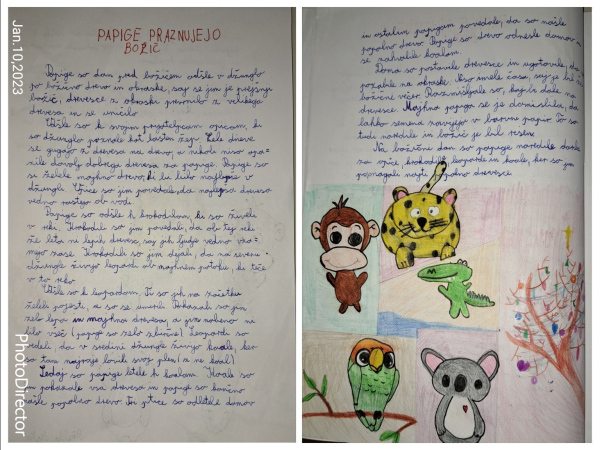 Jan.10,2023
PAPIGE PRAZNUJEJO
BOŽIČ
Papige so dan pred božičem odšle v džunglo
po božično drevo in okraske, saj se jim je prejšnji
božič, drevesce z okraski prevrnilo z velikega
drevesa in se uničilo.
Odšle so k svojim prijateljicam opicam, ki
so džunglo poznale kot lasten žep. Cele dneve
se gugajo z drevesa na drevo in nikoli niso
zile dovolj dobrega drevesa za papige. Papige so
si želele majhno drevo, ki bi bilo najlepše v
džungli. Opice so jim povedale, da najlepša drevesa
vedno rastejo ob vodi.
Papige so odšle h krokodilom, ki so živeli
v reki. Krokodili so jim povedali, da ob tej reki
že leta ni lepih dreves, saj jih ljudje vedno
mejo zase. Krokodili so jim dejali, da na severu
džungle živijo leopardi ob majhnem potoku, ki teče
v to reko.
Odšle so k leopardom. Ti so jih na začetku
želeli pojesti, a so se umirili. Pokazali so jim
zelo lepa in majhna drevesa, a jim nobeno ni
bilo všeč (papige so zelo izbirčne). Leopardi so
vedeli, da v sredini džungle živijo koale, ker
so tam najraje lovili svoj plen (a ne koal).
Sedaj so papige letele h koalam. Koale so
jim pokazale vsa drevesa in papige so končno
našle popolno drevo. Tri ptice so odletele domov
in ostalim papigam povedale, da so našle
popolno drevo. Papige so drevo odnesle domov in
se zahvalile koalam.
Doma so postavile drevesce in ugotovile, da
pozabile na okraske. Niso imele časa, saj je bil
božični večer. Razmišljale so, kaj bi dale na
drevesce. Majhna papiga se je domislila, da
lahko semena zavijejo v barvni papir. To so
tudi naredile in božič je bil rešen.
Na božični dan so papige naredile
za opice, krokodile, leoparde in koale, ker so jim
pomagali najti popolno drevesce.
PhotoDirector